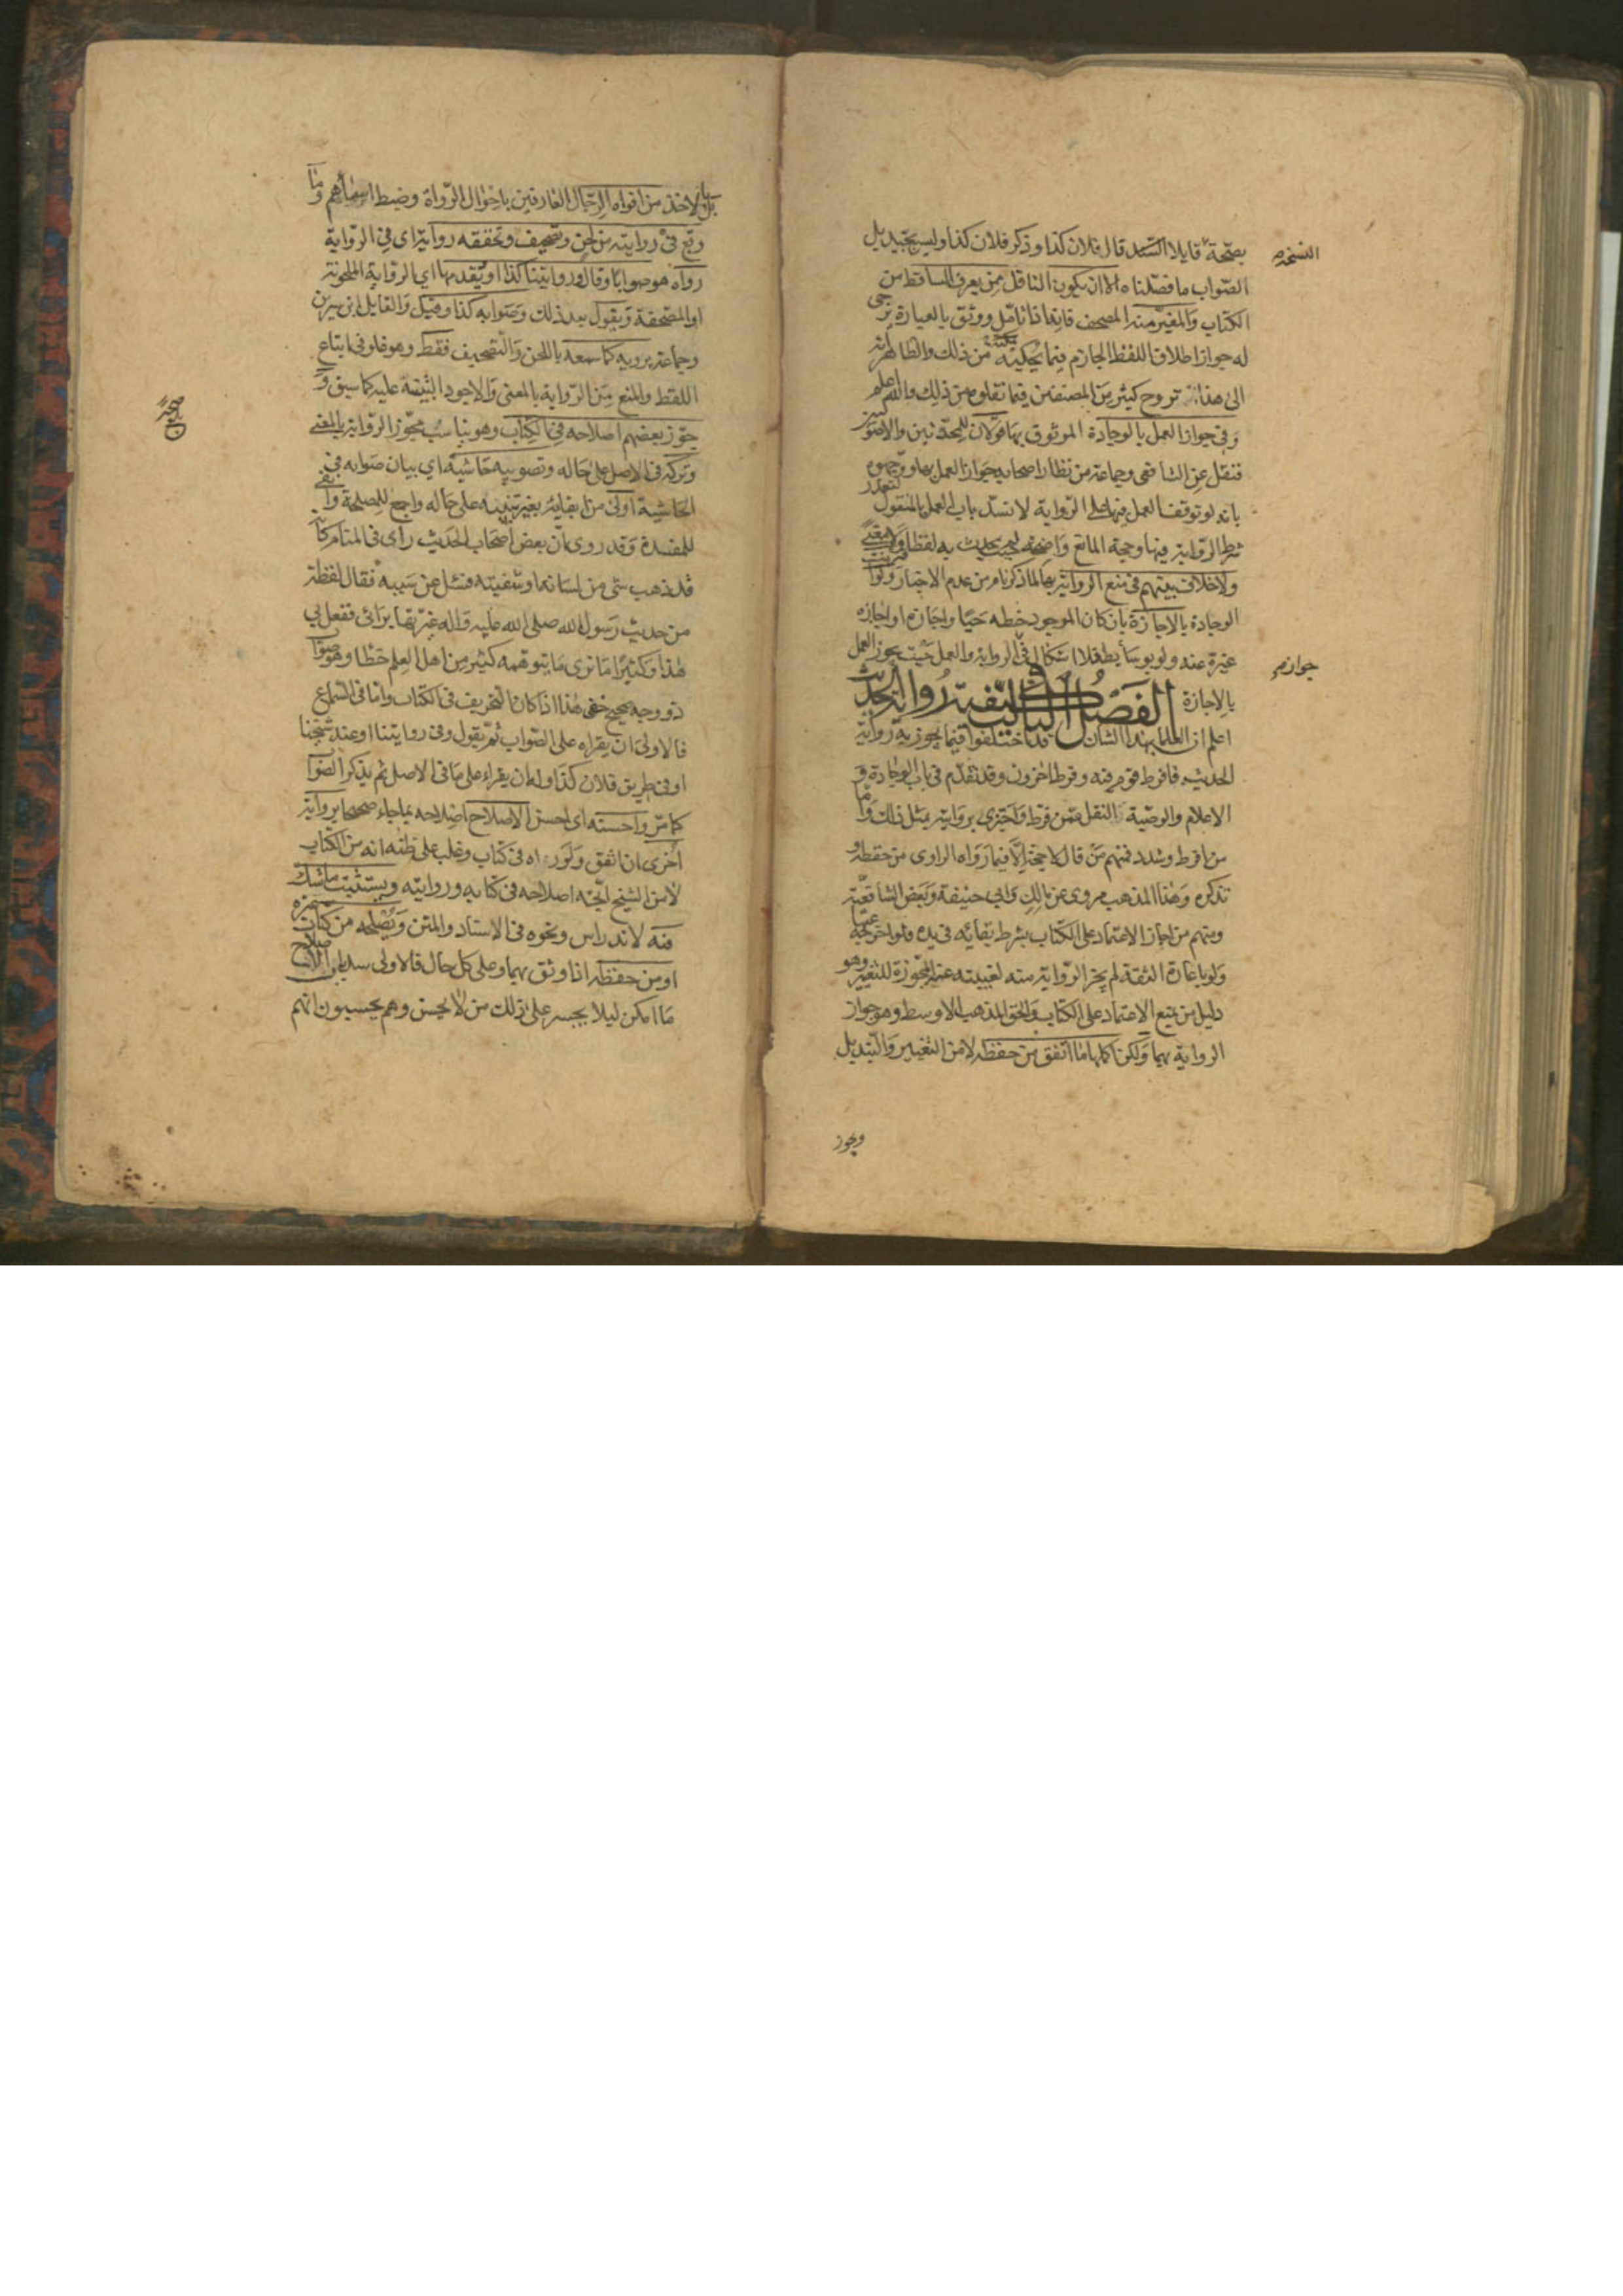 بصحة النسخة قايلا السند قال فلان كذا وذكر فلان كذا وليس بجيد بل
الصّواب ما فصّلناه الا ان يكون الناقل ممّن يعرف الساقط من
الكتاب والمغيّر منه المصحف فانه اذا تامّل ووثق بالعبارة يرجى
له جواز اطلاق اللفظ الجازم فيما يحكيه من ذلك والظاهر انه
الى هذا تروح كثير من المصنفين فيما نقلوه من ذلك والله اعلم
وفي جواز العمل بالوجادة الموثوق بها قولان للمحدّثين والاصوليين
فنقل عن الشافعي وجماعة من نظار اصحابه جواز العمل بها ووجهوه
بانه لو توقف العمل فيها على الرّواية لانسدّ باب العمل بالمنقول لتعذر
شرط الرّواية فيها وحجة المانع واضحة حيث لم يحدث به لفظا ولا معنى
ولا خلاف بينهم في منع الرواية بها لما ذكرناه من عدم الاخبار ولو اقترنت
الوجادة بالاجازة بان كان الموجود خطه حيّا واجازه او اجازه
غيره عنه ولو بوسائط فلا اشكال في جواز الرواية والعمل حيث يجوز العمل
بالاجازة الفصل الثالث في كيفية رواية الحديث
اعلم ان العلماء بهذا الشان قد اختلفوا فيما يجوز به رواية
الحديث فافرط قوم فيه وفرط اخرون وقد تقدّم في باب الوجادة و
الاعلام والوصّية النقل عمّن فرط واجتزى برواية بمثل ذلك وامّا
من افرط وشدد فمنهم من قال لا حجة الّا فيما رواه الراوي من حفظه و
تذكره وهذا المذهب مروي عن مالك وابي حنيفة وبعض الشافعيّة
ومنهم من اجاز الاعتماد على الكتاب بشرط بقايه في يده فلو اخرجه عنها
ولو باعارة الثقة لم يجز الرّواية منه لغيبته عنه المجّوزة للتغيير وهو
دليل من يمنع الاعتماد على الكتاب والحق المذهب الاوسط وهو جواز
الرواية بهما ولكن اكملها ما اتفق من حفظه لامن التغيير والتّبديل
ويجوز
بل بالاخذ من افواه الرّجال العارفين باحوال الرّواة وضبط اسمائهم وما
وقع في روايته من لحن وتصحيف وتحققه رواه اي في الرّواية
رواه صوابا وقال وروايتنا كذا او يقدمها اي الرواية الملحونة
او المصّحفة ويقول بعد ذلك وصوابه كذا وقيل والقايل ابن سيرين
وجماعة يرويه كما سمعه باللحن والتصحيف فقط وهو غلو في اتباع
اللفظ والمنع من الرّواية بالمعنى والاجود التنبيه عليه كما سبق و
جوّز بعضهم اصلاحه في الكتاب وهو يناسب مجّوز الرّواية بالمعنى
وتركه في الاصل على حاله وتصويبه حاشية اي بيان صوابه في
الحاشية اولى من ابقايه بغير تنبيه على حاله واجمع للمصلحة وانفى
للمفسدة وقد روي انّ بعض اصحاب الحديث رأى في المنام كانّه
قد ذهب شي من لسانه او شفتيه فسئل عن سببه فقال لفظة
من حديث رسول الله صلى الله عليه واله غيّرتها برائي ففعل بي
هذا وكثيرا ما نرى ما يتوهمه كثير من اهل العلم خطأ وهو صواب
ذو وجه صحيح خفي هذا اذا كان التحريف في الكتاب وامّا في السّماع
فالاولى ان يقراه على الصّواب ثمّ يقول وفي روايتنا او عند شيخنا
او في طريق فلان كذا وله ان يقراء على ما في الاصل ثم يذكر الصّواب
كما مرّ واحسنه اي احسن الاصلاح اصلاحه بما جاء صحيحا برواية
اُخرى ان اتفق ولو راه في كتاب وغلب على ظنّه انه من الكتاب
لا من الشيخ اتّجه اصلاحه في كتابه وروايته ويستثبت ما شكّ
فيه لاندراس ونحوه في الاسناد والمتن ويصلحه من كتاب غيره
او من حفظه اذا وثق بهما وعلى كل حال فالاولى سد باب الاصلاح
ما امكن ليلا يجسر على ذلك من لا يحسن وهم يحسبون انهم